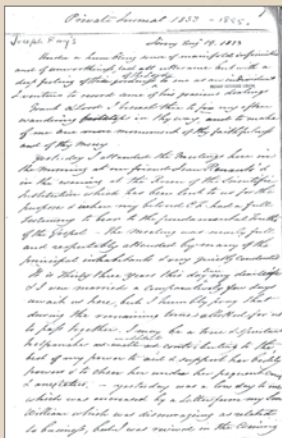 Private Journal 1833 - 1835.
Joseph Fry's Aug 19. 1833
Under a humbling sense of manifold infirmities
and of unworthiness but with a
deep feeling of of the Lord's to me as an individual
I venture to record some of his gracious dealings
Grant O Lord I beseech thee to my often
wandering footsteps in thy way, and to make
of me one more monument of thy faithfulness
and of thy Mercy
Yesterday I attended the Meetings here in
the Morning at our friend
in the evening at the Room of the Scientific
Institution which has been lent to us for the
purpose & when my beloved had a full
testimony to bear to the fundamental Truths
of the Gospel - the Meeting was nearly full
and respectably attended by many of the
principal inhabitants & very quietly conducted
It is thirty three years this day my dear
& I was married a comparatively few days
await us here, but I humbly pray that
during the remaining time allotted for us
to pass together, I may be a true & spiritual
helpmate as well as contributing to the
best of my power to aid & support her bodily
powers & to cheer her under her frequent
& anxieties, - yesterday was a low day to me
which was increased by a letter from my Son
William which was discouraging as related
to business, but I was revived in the evening